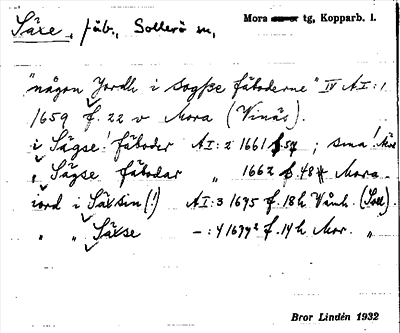 Säxe, fäb., Sollerö sn,
Mora tg, Kopparb. l.
"någon Jordh i Sogsse fäboderne" IV AI:1
1659 f. 22 v Mora (Vinäs).
i Sägse! fäboder AI:2 1661 f 54 ; sma! Mor
" Sägse fäbodar " 1662 f. 48 Mora
iörd i Säxsin (!) AI:3 1695 f. 18h Vånh. (Soll).
" " Säxse –:4 1699² f. 14h Mor. "
Bror Lindén 1932